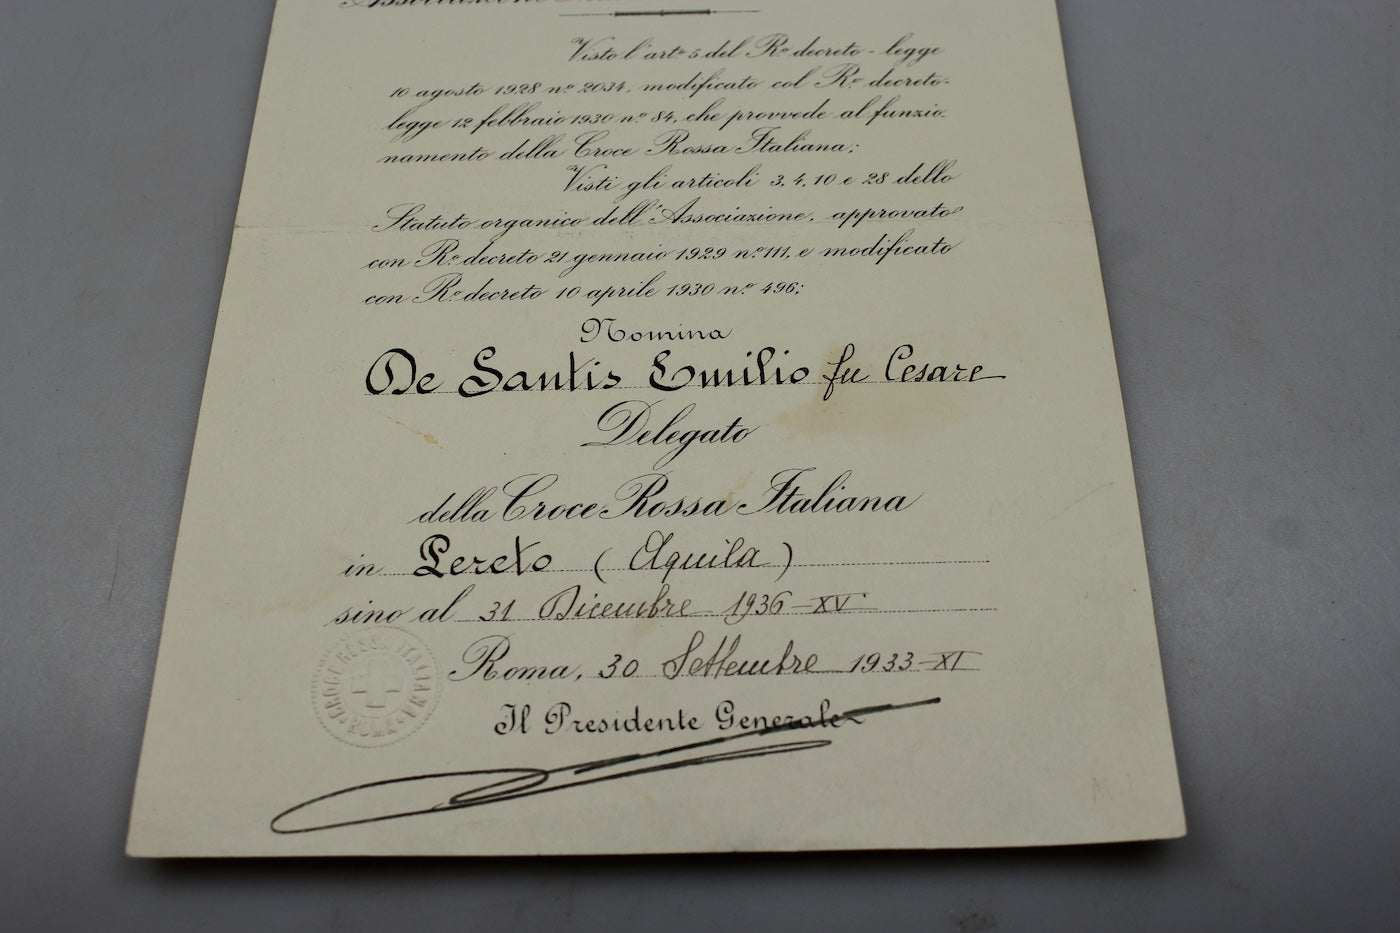 Associazione
Visto l'arto 5 del Ro decreto-legge
10 agosto 1928 no 2034, modificato col Ro decreto-
legge 12 febbraio 1930 no 84, che provvede al funzio-
namento della Croce Rossa Italiana;
Visti gli articoli 3, 4, 10 e 28 dello
Statuto organico dell'Associazione, approvato
con Ro decreto 21 gennaio 1929 no 111, e modificato
con Ro decreto 10 aprile 1930 no 496;
Nomina
De Santis Emilio fu Cesare
Delegato
della Croce Rossa Italiana
in Pereto (Aquila)
sino al 31 Dicembre 1936-XV
CROCE ROSSA ITALIANA
ROMA
Roma, 30 Settembre 1933-XI
Il Presidente Generale